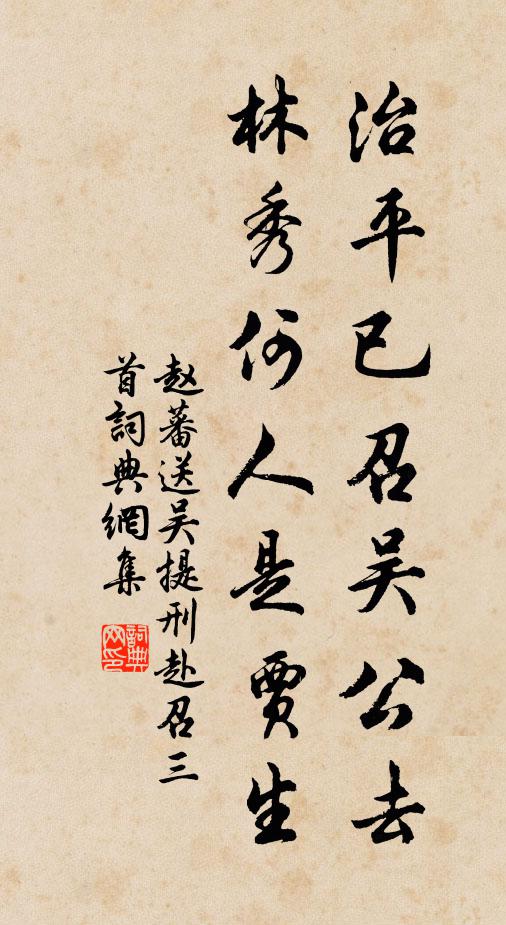 治平已召吴公去
林秀何人是贾生
赵蕃送吴提刑赴召三
首詞典網集
詞典
网印